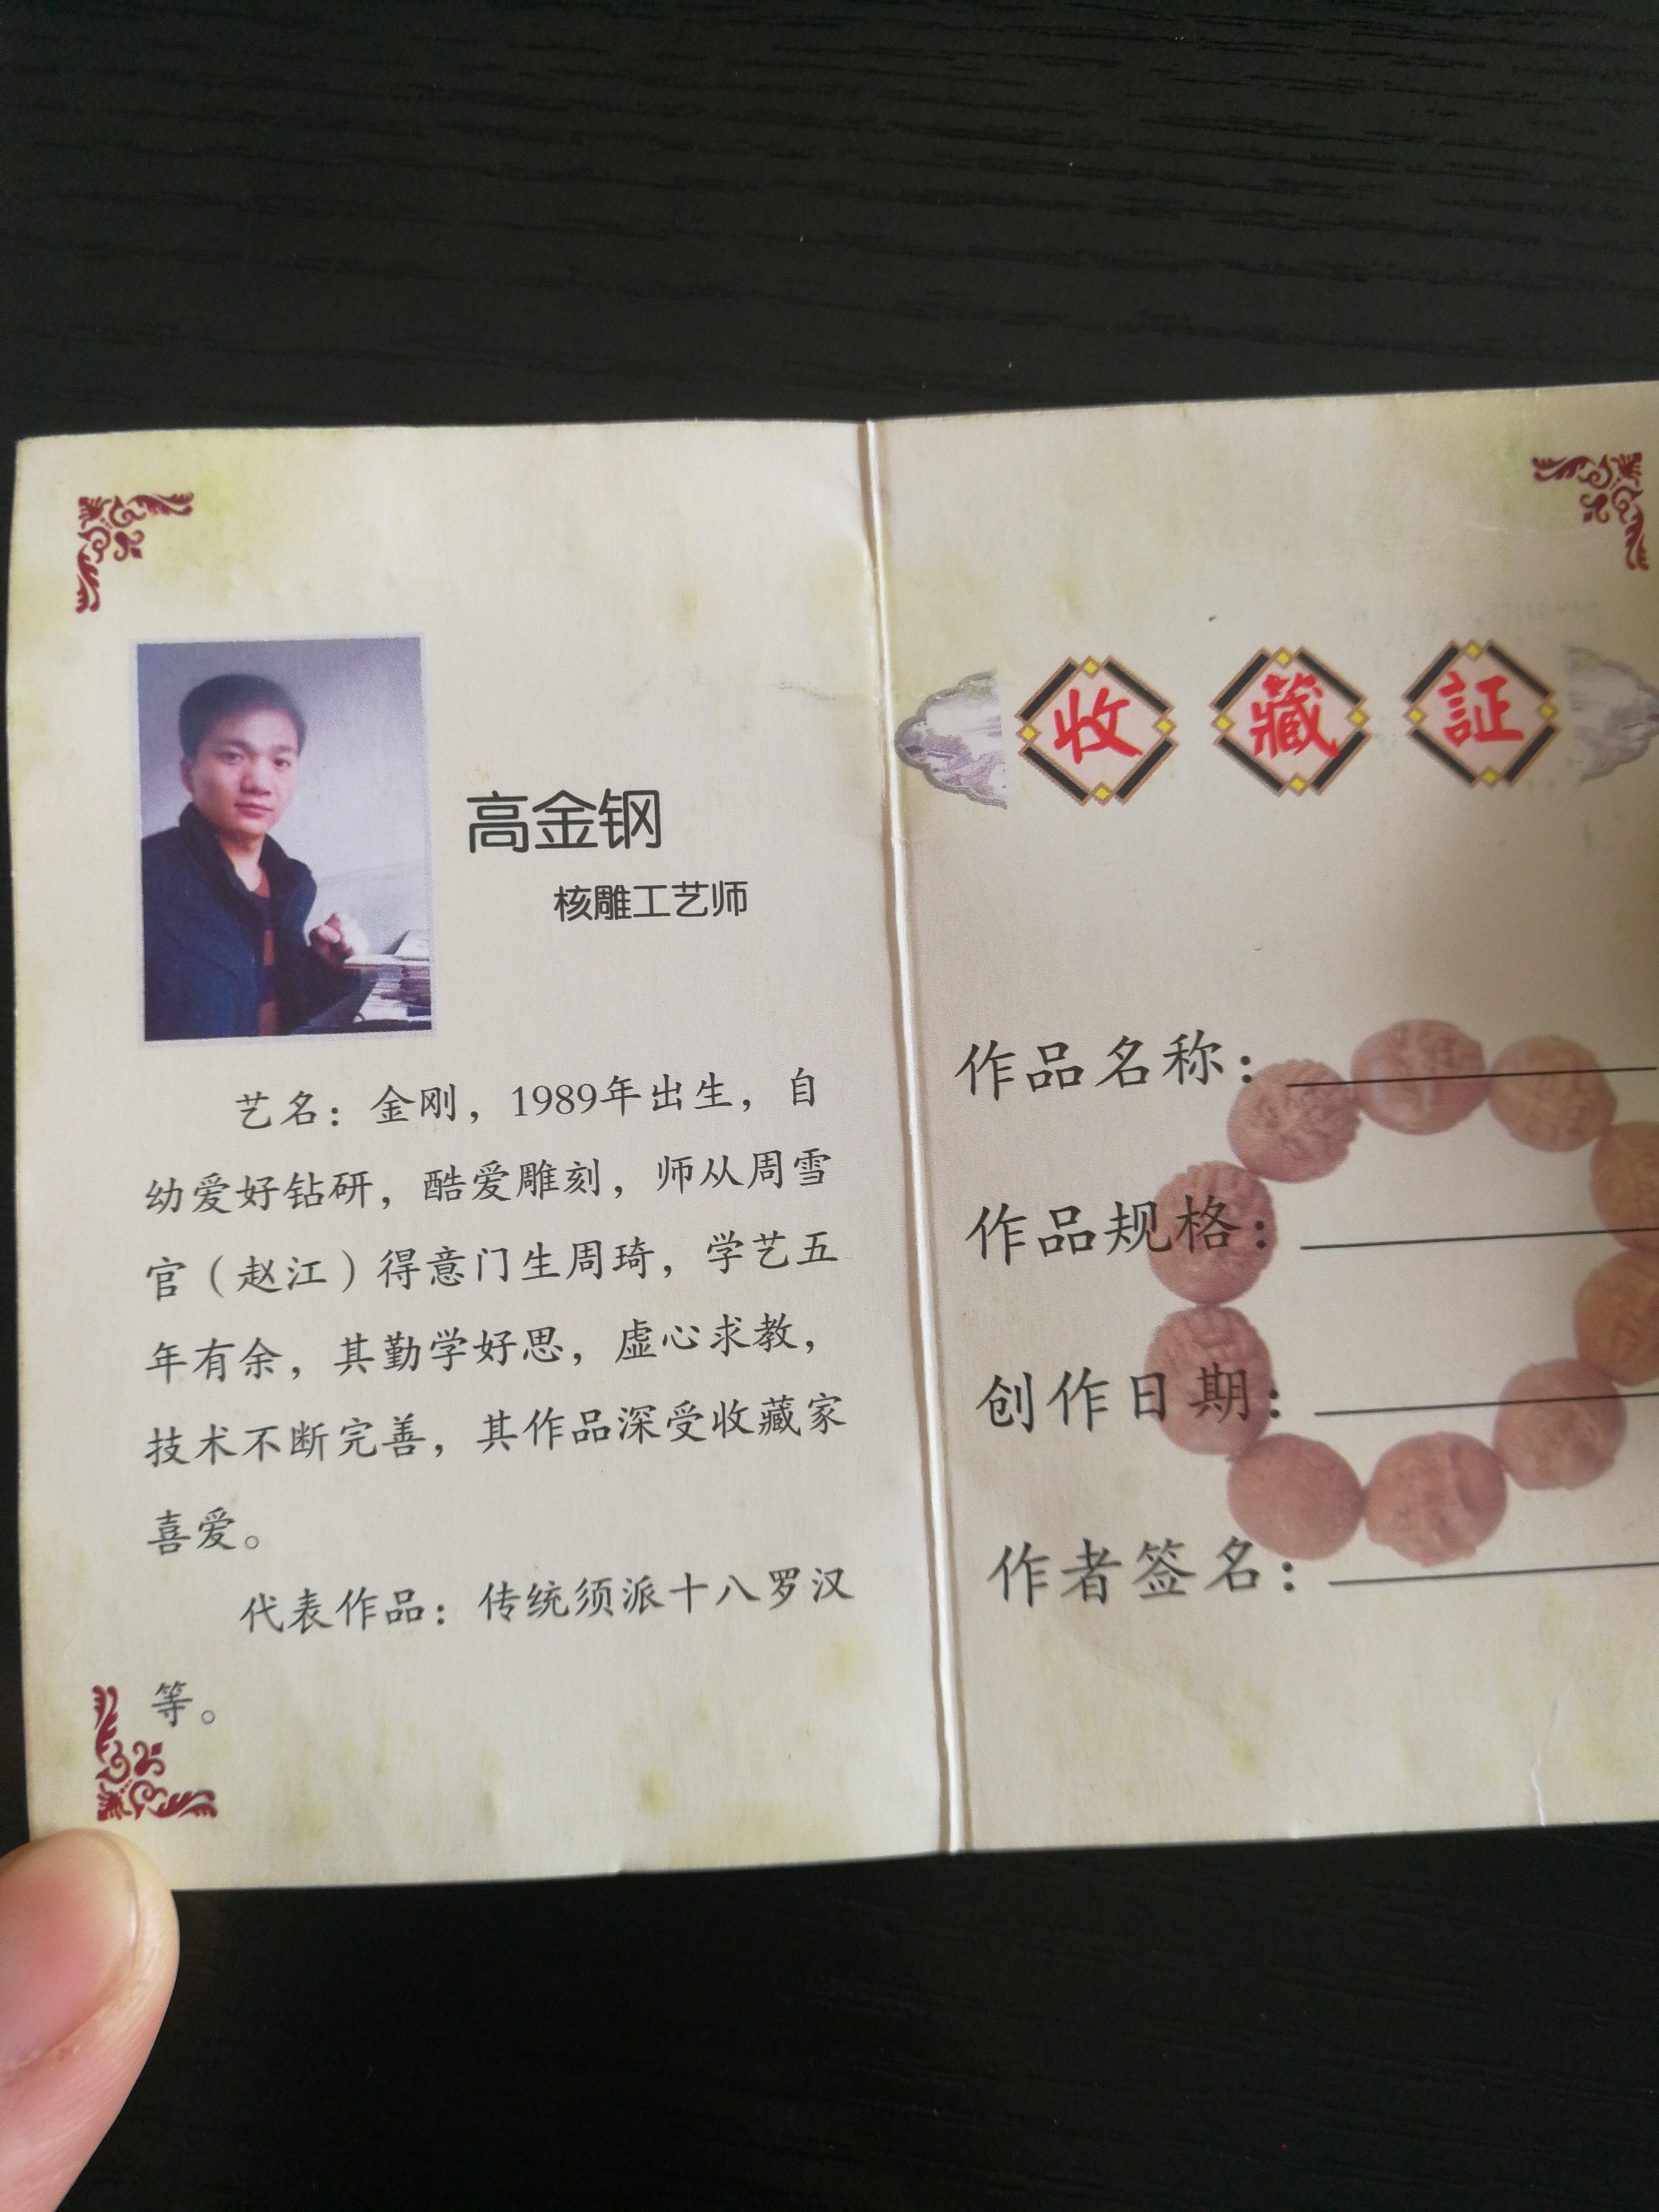 高金钢
核雕工艺师
艺名：金刚，1989年出生，自
幼爱好钻研，酷爱雕刻，师从周雪
官（赵江）得意门生周琦，学艺五
年有余，其勤学好思，虚心求教，
技术不断完善，其作品深受收藏家
喜爱。
代表作品：传统须派十八罗汉
等。
收藏証
作品名称：
作品规格：
创作日期：
作者签名：